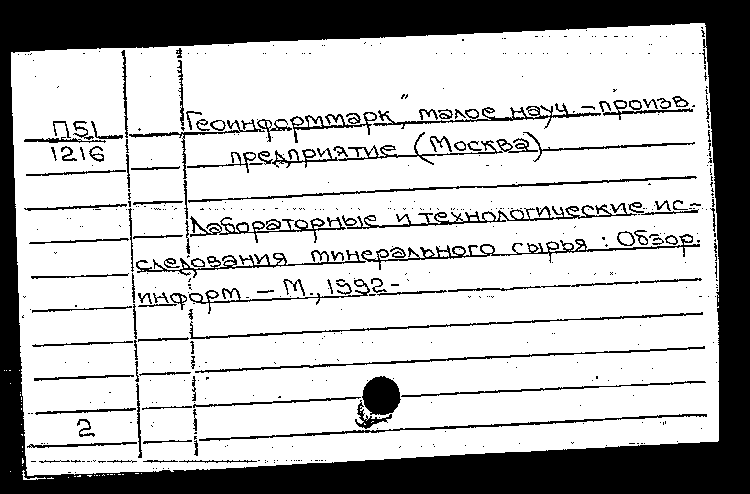 П51
1216
Геоинформмарк," малое науч.-произв.
предприятие (Москва)
Лабораторные и технологические ис-
следования минерального сырья: Обзор.
информ. - М., 1992-
2